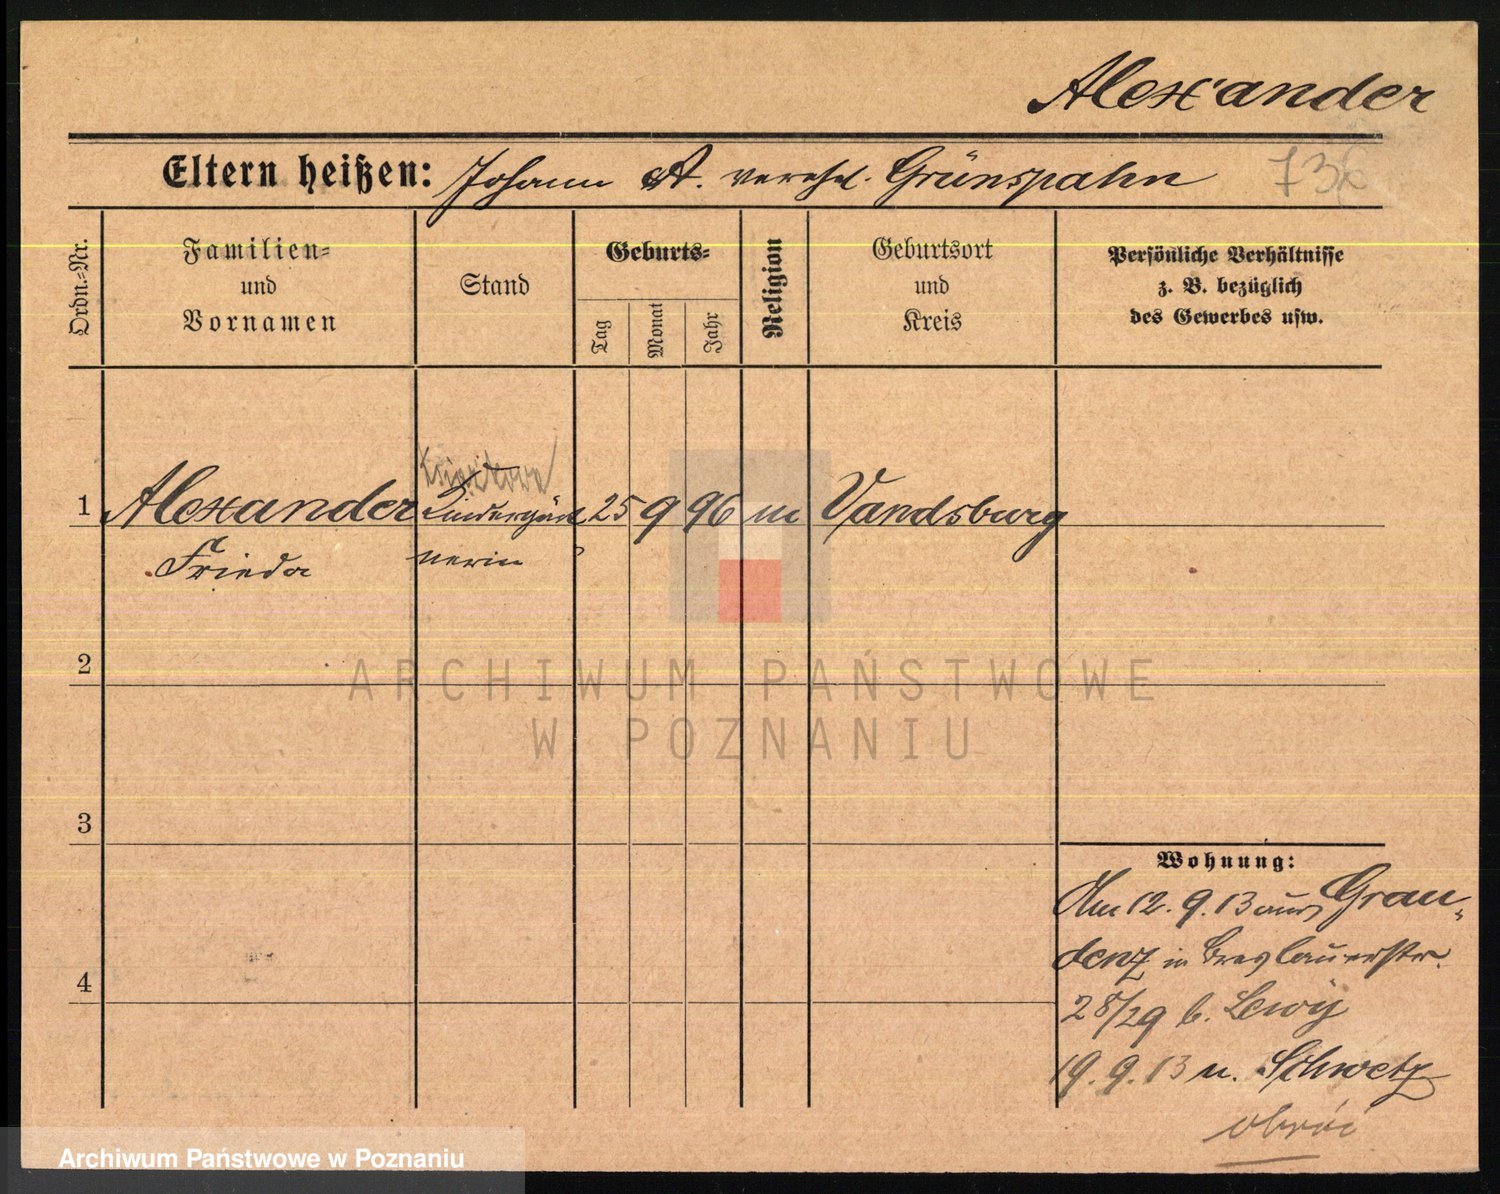 Alexander
Eltern heißen: Johann A. verehel. Grünspahn
Ordn.-Nr.
Familien-
und
Vornamen
Stand
Geburts-
Tag
Monat
Jahr
Religion
Geburtsort
und
Kreis
Persönliche Verhältnisse
z. B. bezüglich
des Gewerbes usw.
1 Alexander Kindergärt 25 9 96 m Vandsburg
Frieda nerin
2
3
4
Wohnung:
Am 12. 9. 13 aus Grau-
denz in Breslauerstr.
28/29 b. Lewy
19. 9. 13 n. Schwetz
obróć
ARCHIWUM PAŃSTWOWE
W POZNANIU
Archiwum Państwowe w Poznaniu